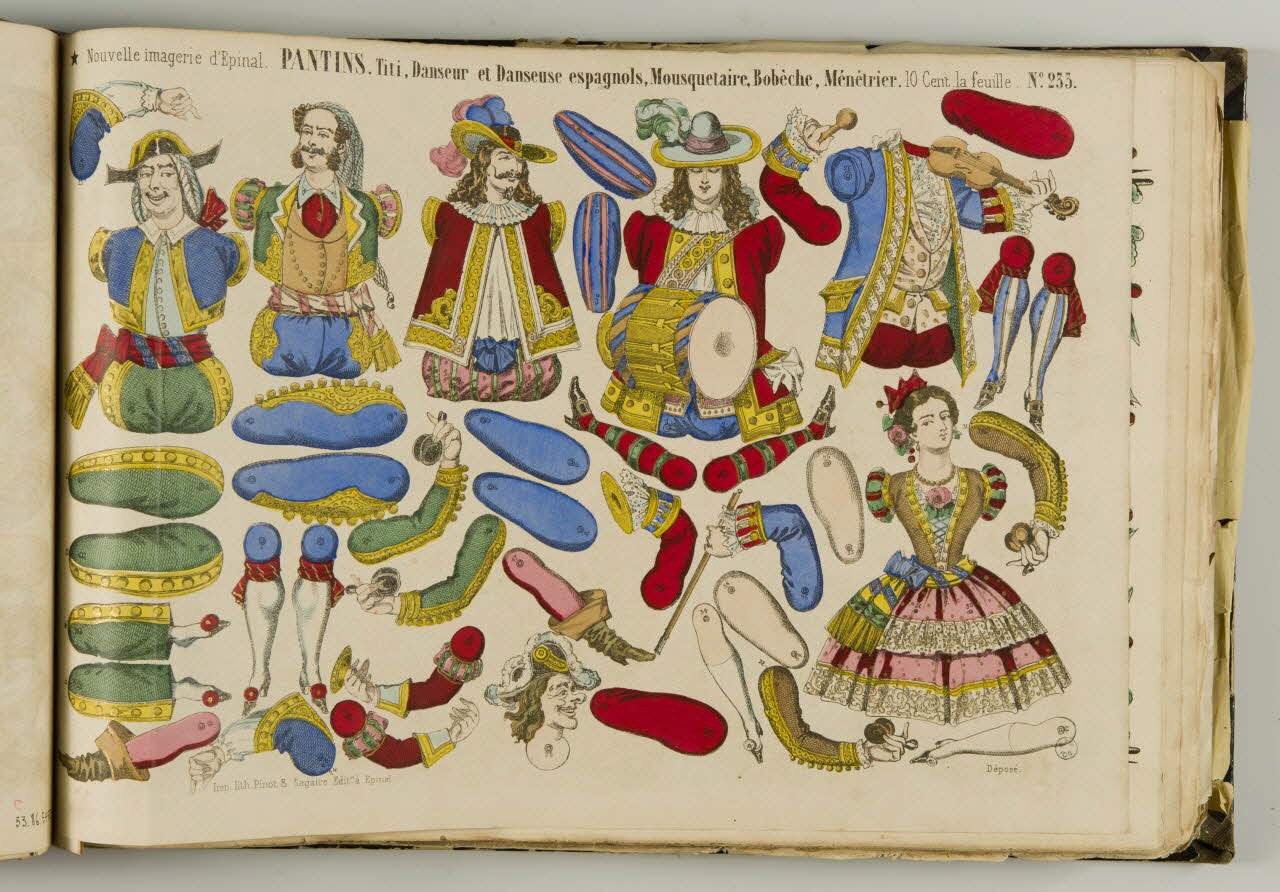 ★ Nouvelle imagerie d'Epinal. PANTINS. Titi, Danseur et Danseuse espagnols, Mousquetaire, Bobèche, Ménétrier. 10 Cent. la feuille. Nº 233.
Déposé.
Imp. lith. Pinot & Sagaire Edit.rs à Epinal
53.86.